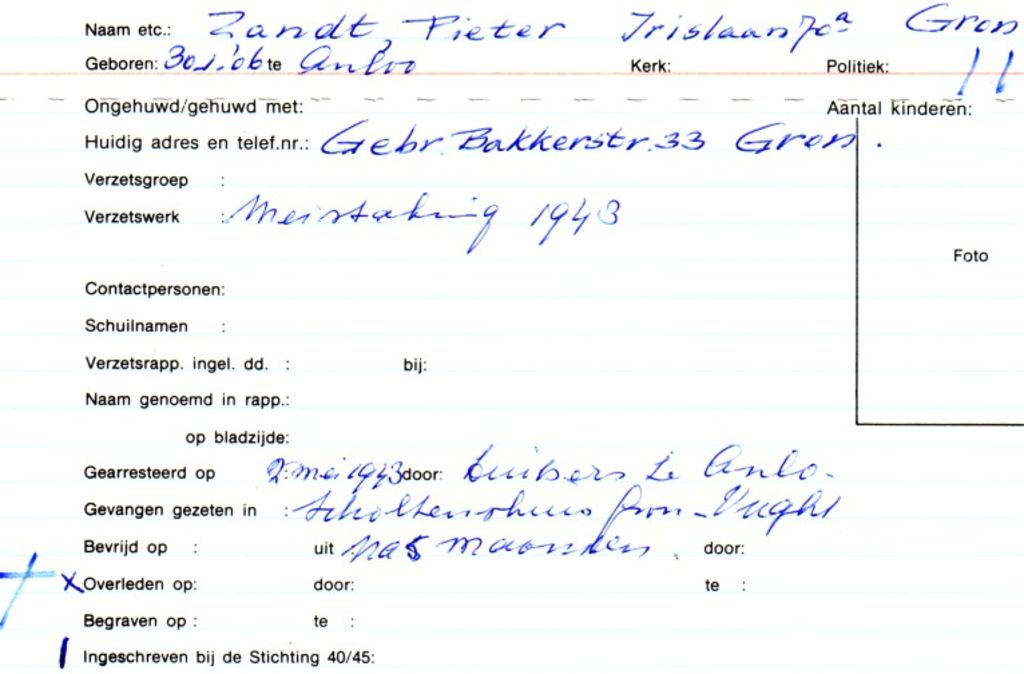 Naam etc.: Zandt, Pieter Irislaan 70a Gron
Geboren: 30.1.'06 te Anloo Kerk: Politiek: 11
Ongehuwd/gehuwd met: Aantal kinderen:
Huidig adres en telef.nr.: Gebr. Bakkerstr. 33 Gron.
Verzetsgroep :
Verzetswerk : Meistaking 1943
Foto
Contactpersonen:
Schuilnamen :
Verzetsrapp. ingel. dd. : bij:
Naam genoemd in rapp.:
op bladzijde:
Gearresteerd op 2 mei 1943 door: Duitsers te Anlo-
Gevangen gezeten in : Scholtenshuis Gron - Vught
Bevrijd op : uit na 5 maanden. door:
x Overleden op: door: te :
Begraven op : te :
Ingeschreven bij de Stichting 40/45: